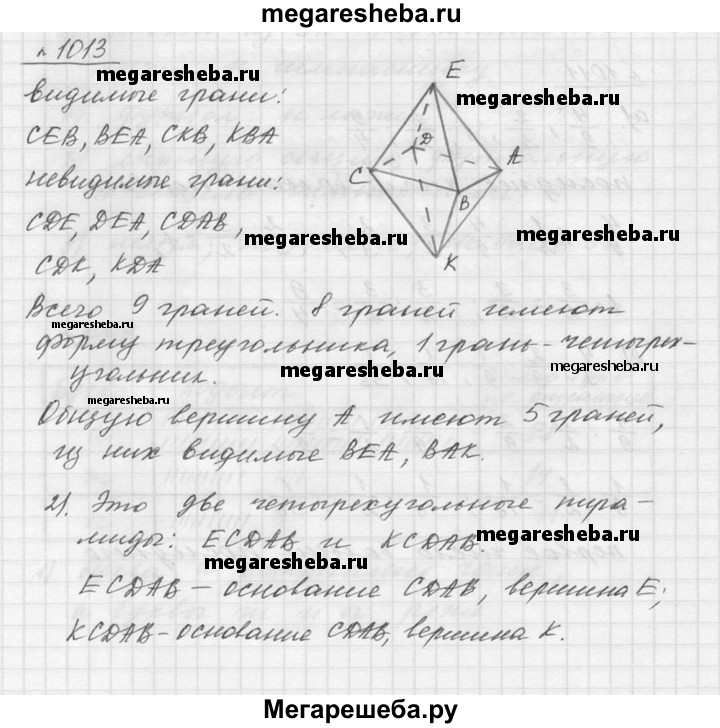 megaresheba.ru
№ 1013
megaresheba.ru
видимые грани:
megaresheba.ru
CEB, BEA, CKB, KBA
невидимые грани:
CDE, DEA, CDAB,
megaresheba.ru
megaresheba.ru
CDK, KDA
E
D
C
A
B
K
Всего 9 граней. 8 граней имеют
megaresheba.ru
форму треугольника, 1 грань - четырех-
megaresheba.ru
megaresheba.ru
угольник.
megaresheba.ru
Общую вершину A имеют 5 граней,
из них видимые BEA, BAK.
2). Это две четырехугольные пира-
миды: ECDAB и KCDAB.
megaresheba.ru
ECDAB – основание CDAB, вершина E;
KCDAB – основание CDAB, вершина K.
Мегарешеба.ру